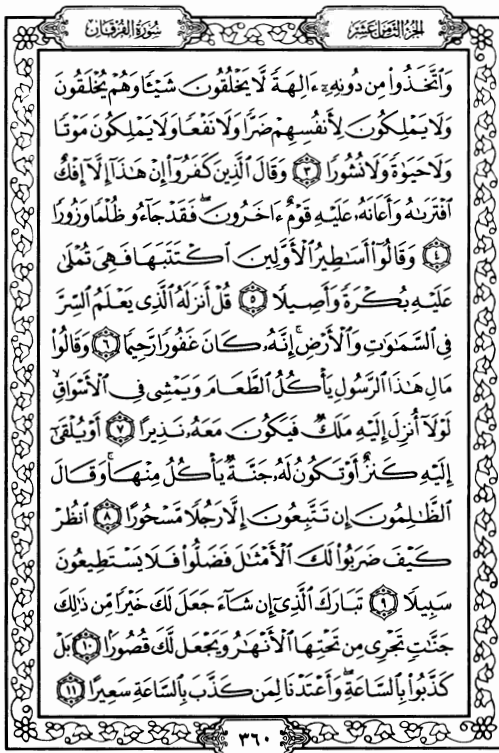 سُورَةُ الفُرْقَانِ
الجُزْءُ الثَّامِنَ عَشَرَ
وَٱتَّخَذُواْ مِن دُونِهِۦٓ ءَالِهَةً لَّا يَخْلُقُونَ شَيْـًٔا وَهُمْ يُخْلَقُونَ
وَلَا يَمْلِكُونَ لِأَنفُسِهِمْ ضَرًّا وَلَا نَفْعًا وَلَا يَمْلِكُونَ مَوْتًا
وَلَا حَيَوٰةً وَلَا نُشُورًا ٣ وَقَالَ ٱلَّذِينَ كَفَرُوٓاْ إِنْ هَٰذَآ إِلَّآ إِفْكٌ
ٱفْتَرَىٰهُ وَأَعَانَهُۥ عَلَيْهِ قَوْمٌ ءَاخَرُونَۖ فَقَدْ جَآءُو ظُلْمًا وَزُورًا
٤ وَقَالُوٓاْ أَسَٰطِيرُ ٱلْأَوَّلِينَ ٱكْتَتَبَهَا فَهِىَ تُمْلَىٰ
عَلَيْهِ بُكْرَةً وَأَصِيلًا ٥ قُلْ أَنزَلَهُ ٱلَّذِى يَعْلَمُ ٱلسِّرَّ
فِى ٱلسَّمَٰوَٰتِ وَٱلْأَرْضِۚ إِنَّهُۥ كَانَ غَفُورًا رَّحِيمًا ٦ وَقَالُواْ
مَالِ هَٰذَا ٱلرَّسُولِ يَأْكُلُ ٱلطَّعَامَ وَيَمْشِى فِى ٱلْأَسْوَاقِۙ
لَوْلَآ أُنزِلَ إِلَيْهِ مَلَكٌ فَيَكُونَ مَعَهُۥ نَذِيرًا ٧ أَوْ يُلْقَىٰٓ
إِلَيْهِ كَنزٌ أَوْ تَكُونُ لَهُۥ جَنَّةٌ يَأْكُلُ مِنْهَاۚ وَقَالَ
ٱلظَّٰلِمُونَ إِن تَتَّبِعُونَ إِلَّا رَجُلًا مَّسْحُورًا ٨ ٱنظُرْ
كَيْفَ ضَرَبُواْ لَكَ ٱلْأَمْثَٰلَ فَضَلُّواْ فَلَا يَسْتَطِيعُونَ
سَبِيلًا ٩ تَبَارَكَ ٱلَّذِىٓ إِن شَآءَ جَعَلَ لَكَ خَيْرًا مِّن ذَٰلِكَ
جَنَّٰتٍ تَجْرِى مِن تَحْتِهَا ٱلْأَنْهَٰرُ وَيَجْعَل لَّكَ قُصُورًۢا ١٠ بَلْ
كَذَّبُواْ بِٱلسَّاعَةِۖ وَأَعْتَدْنَا لِمَن كَذَّبَ بِٱلسَّاعَةِ سَعِيرًا ١١
٣٦٠